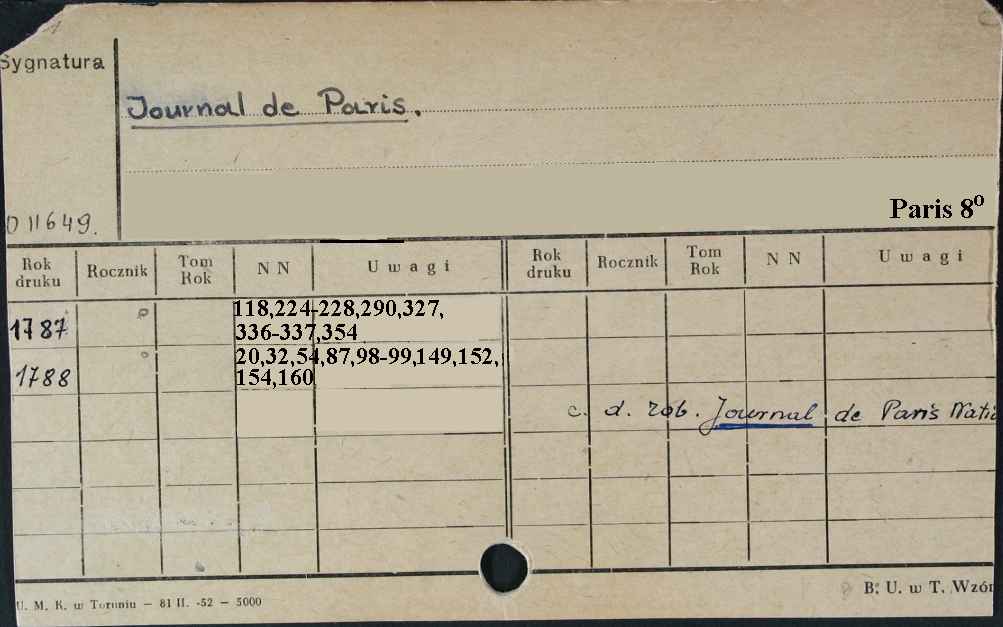 Sygnatura
Journal de Paris.
Paris 8º
O 11649.
Rok druku Rocznik Tom Rok N N Uwagi Rok druku Rocznik Tom Rok N N Uwagi
1787 118,224-228,290,327,
336-337,354
1788 20,32,54,87,98-99,149,152,
154,160
c. d. zob. Journal de Paris Natio
B. U. w T. Wzór
U. M. K. w Toruniu – 81 II. -52 – 5000